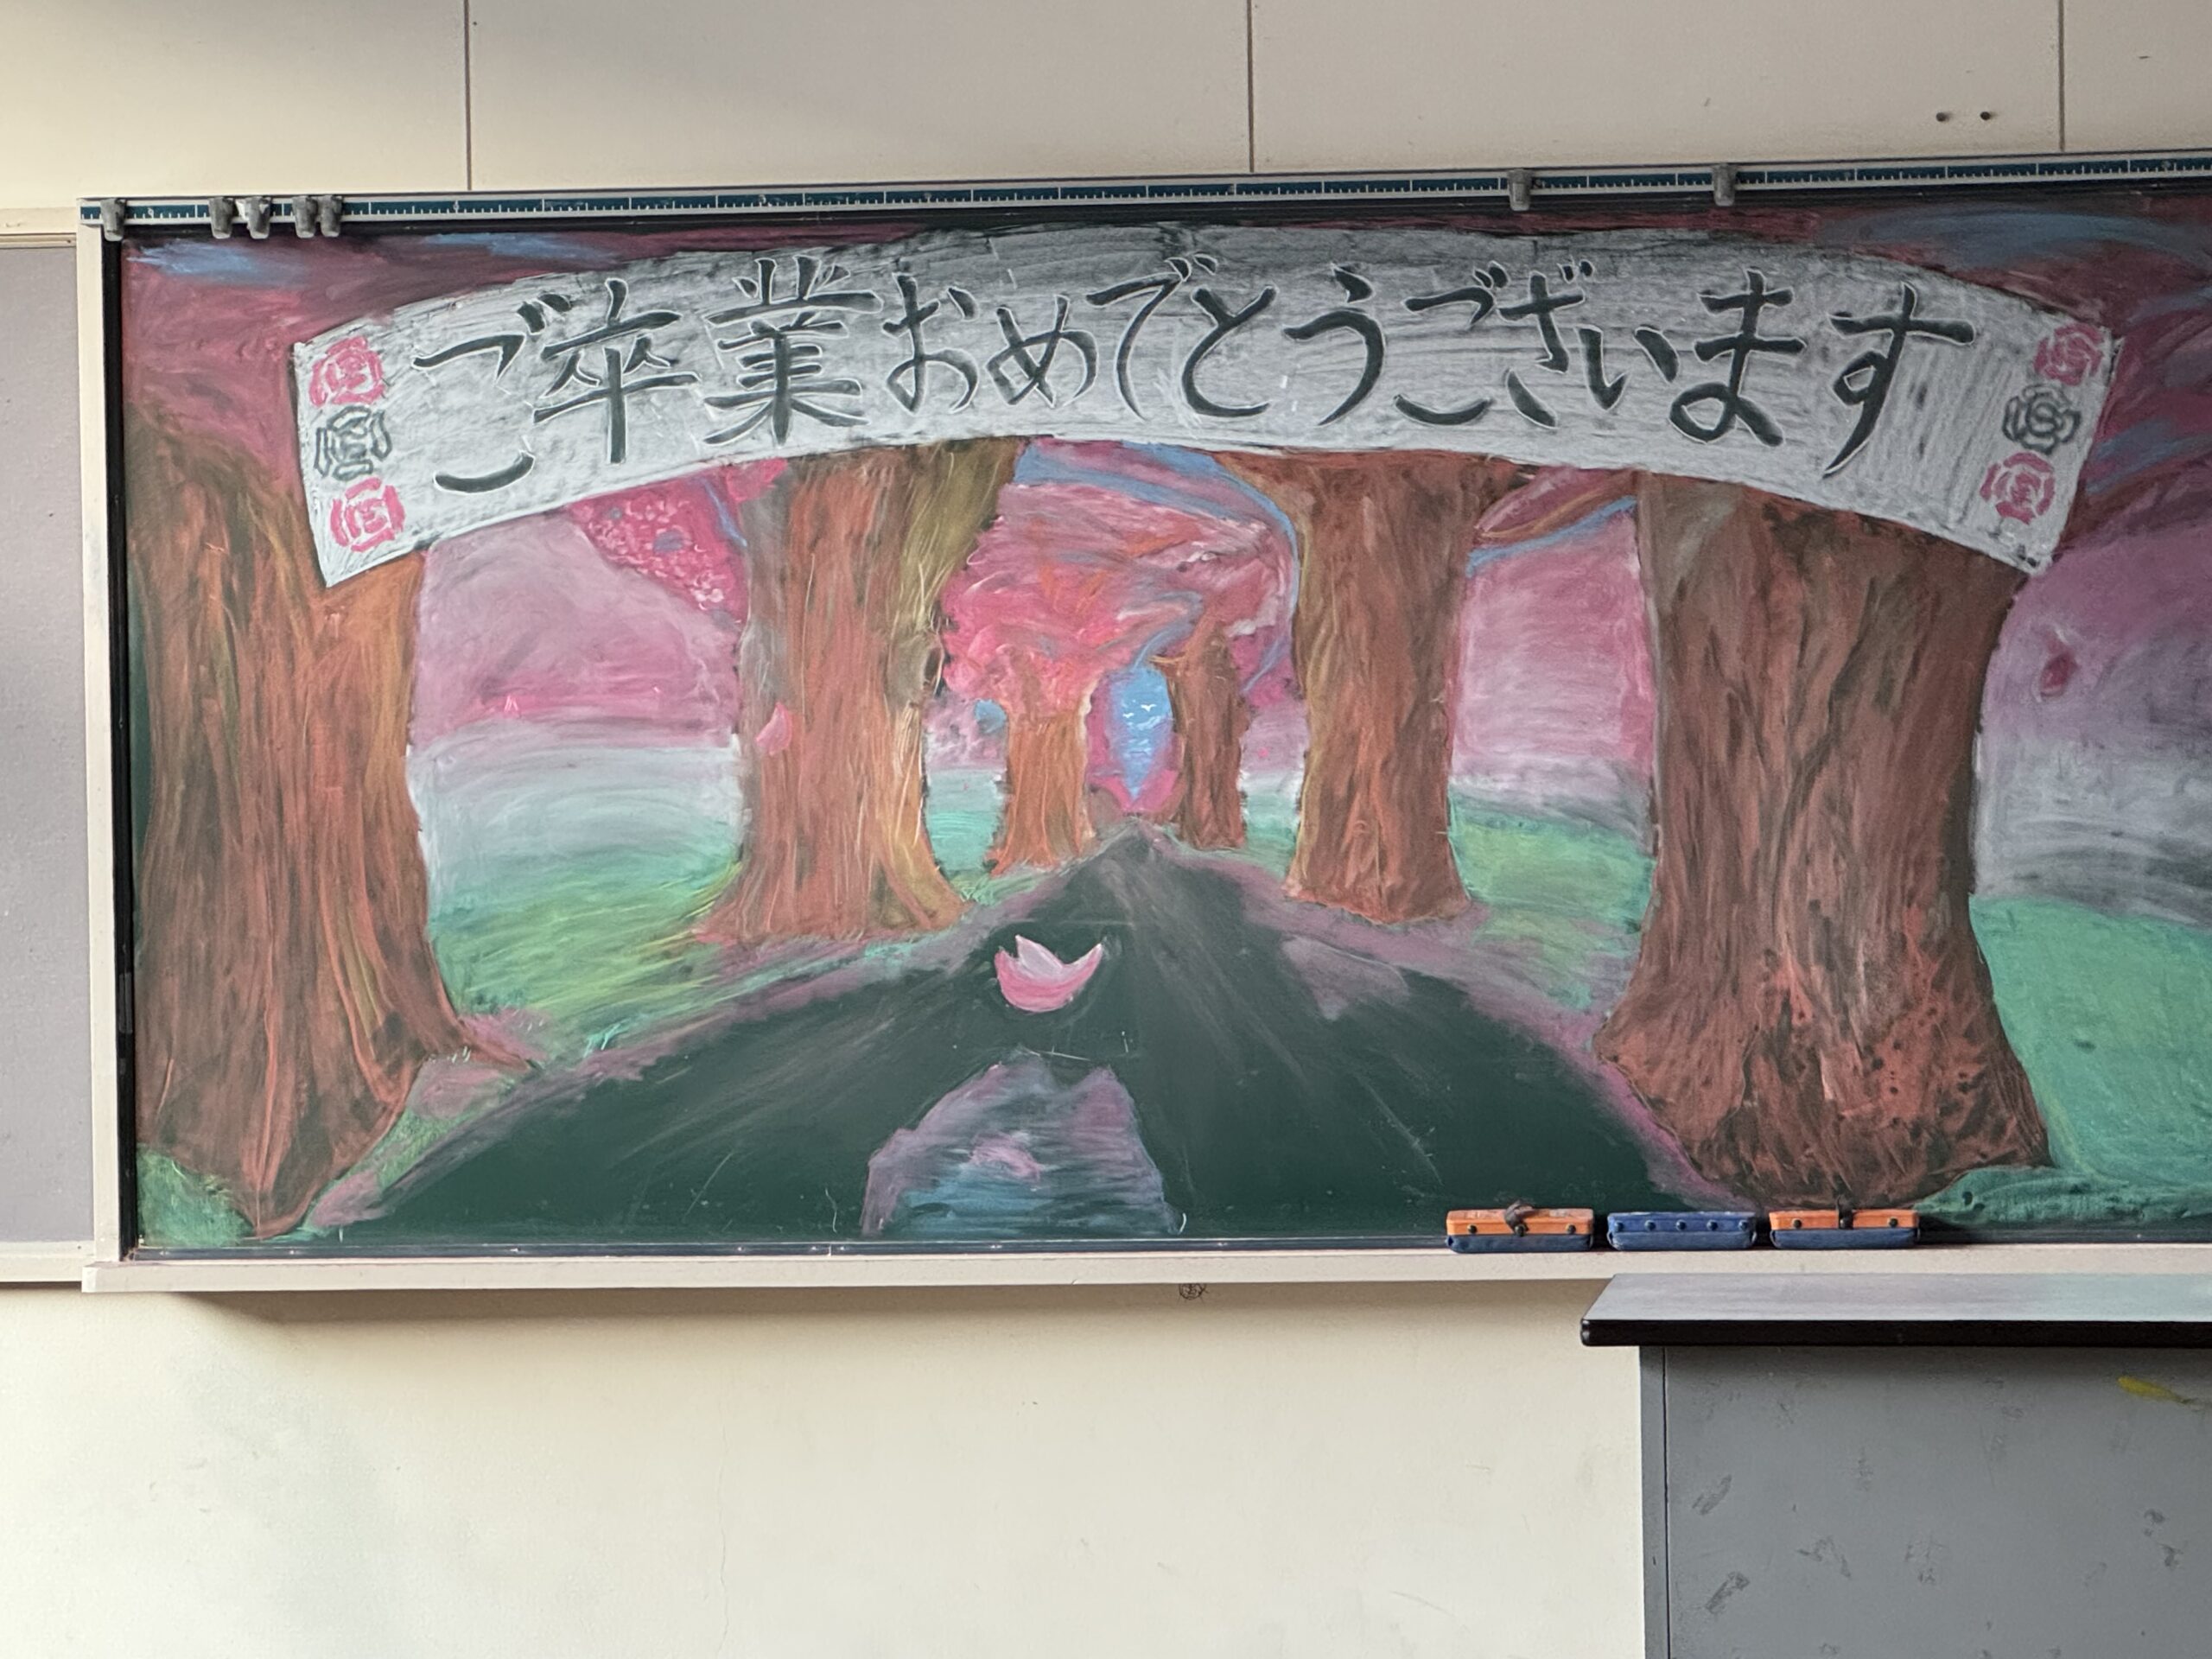 ご卒業おめでとうございます